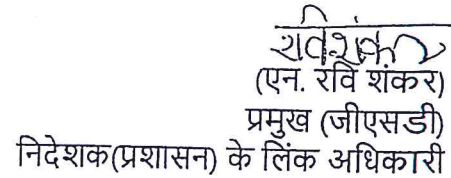 रविशंकर
(एन. रवि शंकर)
प्रमुख (जीएसडी)
निदेशक(प्रशासन) के लिंक अधिकारी